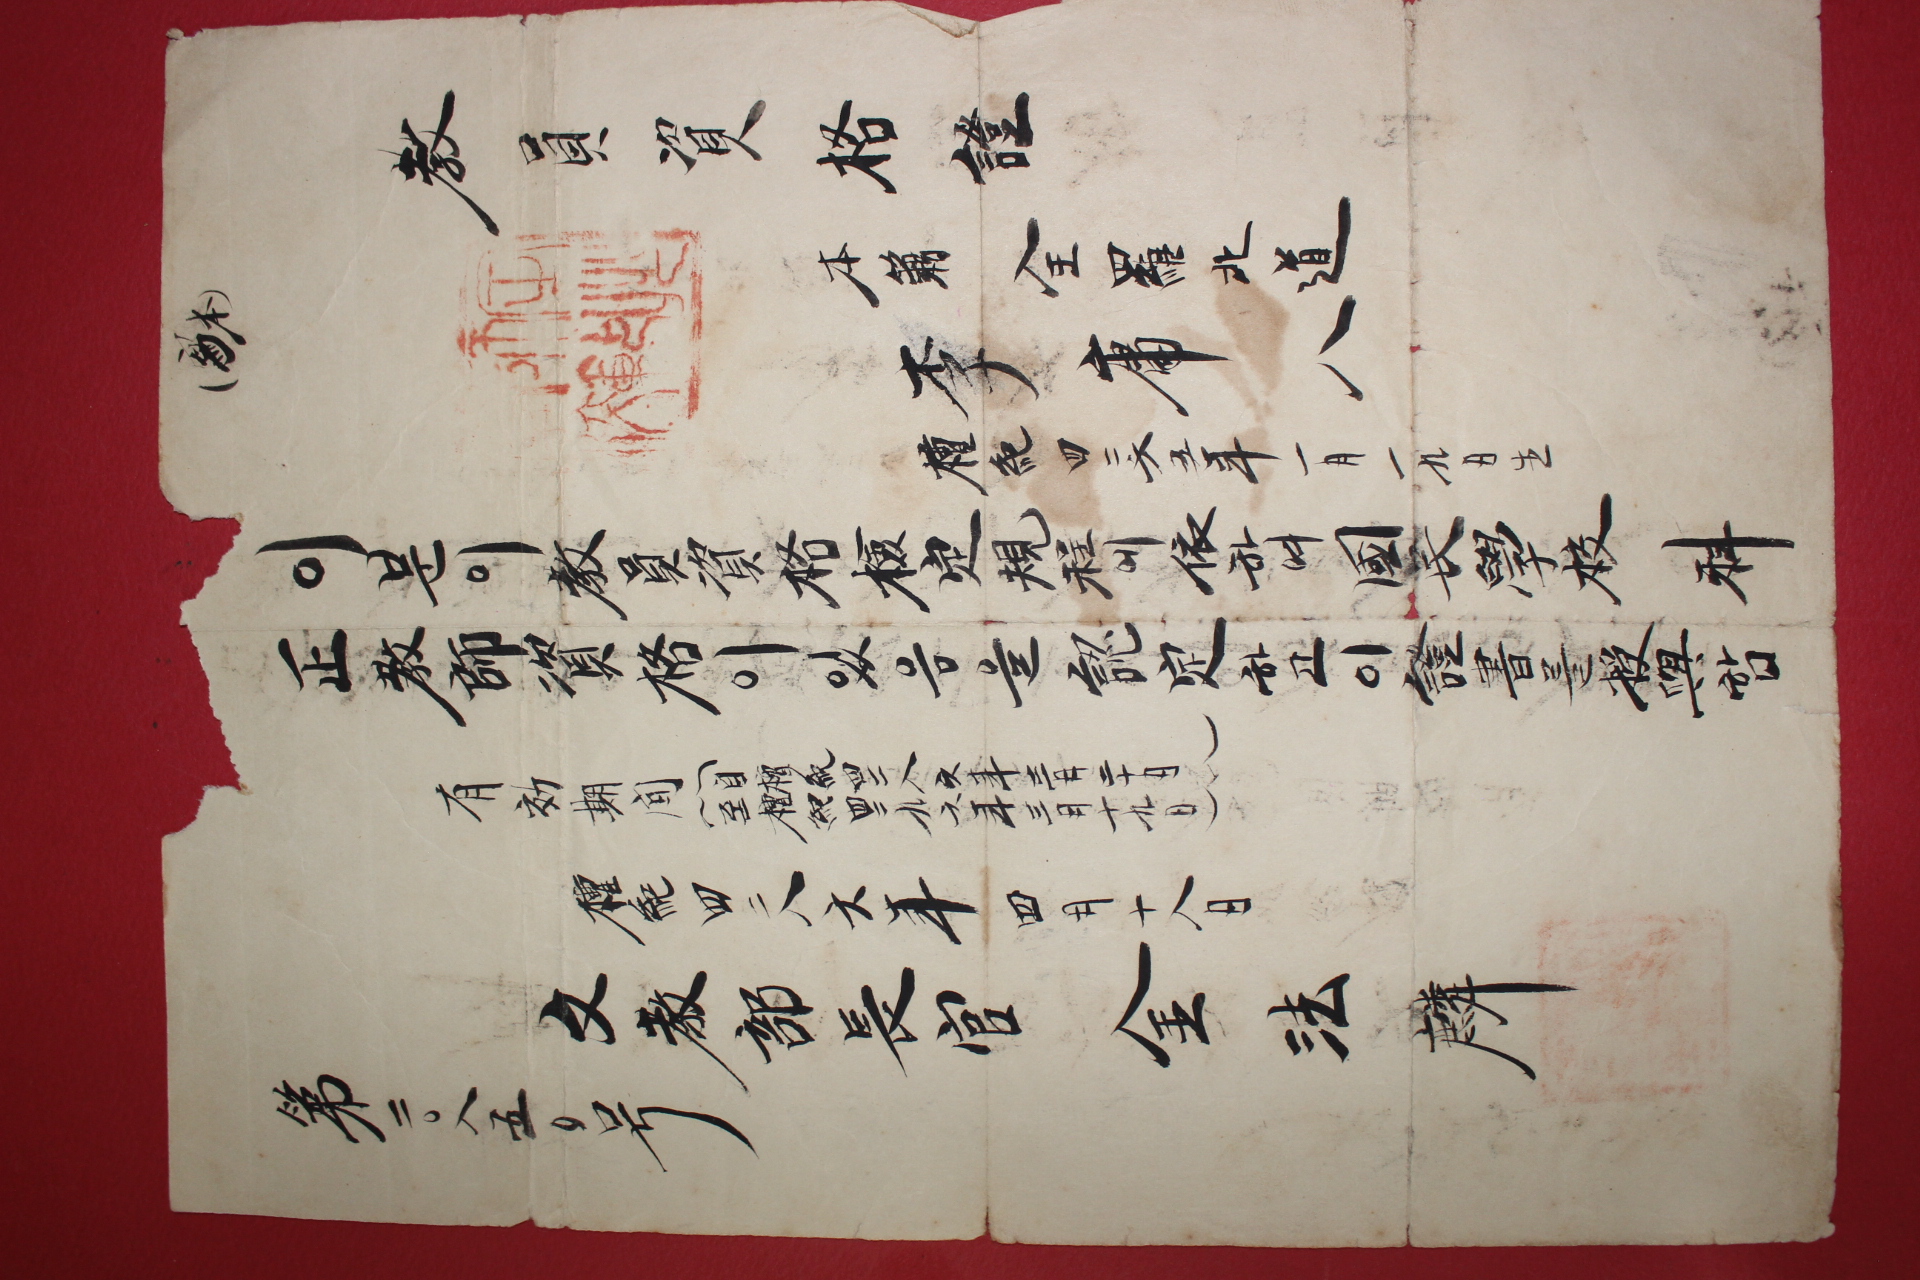 (寫本)
教員資格證
本籍 全羅北道
李庸八
檀紀四二六五年一月一九日生
이분이教員資格檢定規程에依하여國民學校 科
正教師資格이있음을認定하고이證書를授與함
有効期間(自檀紀四二八六年三月二十日
至檀紀四二九六年三月十九日)
檀紀四二八六年 四月十八日
文教部長官 金法麟
第二〇八五〇号